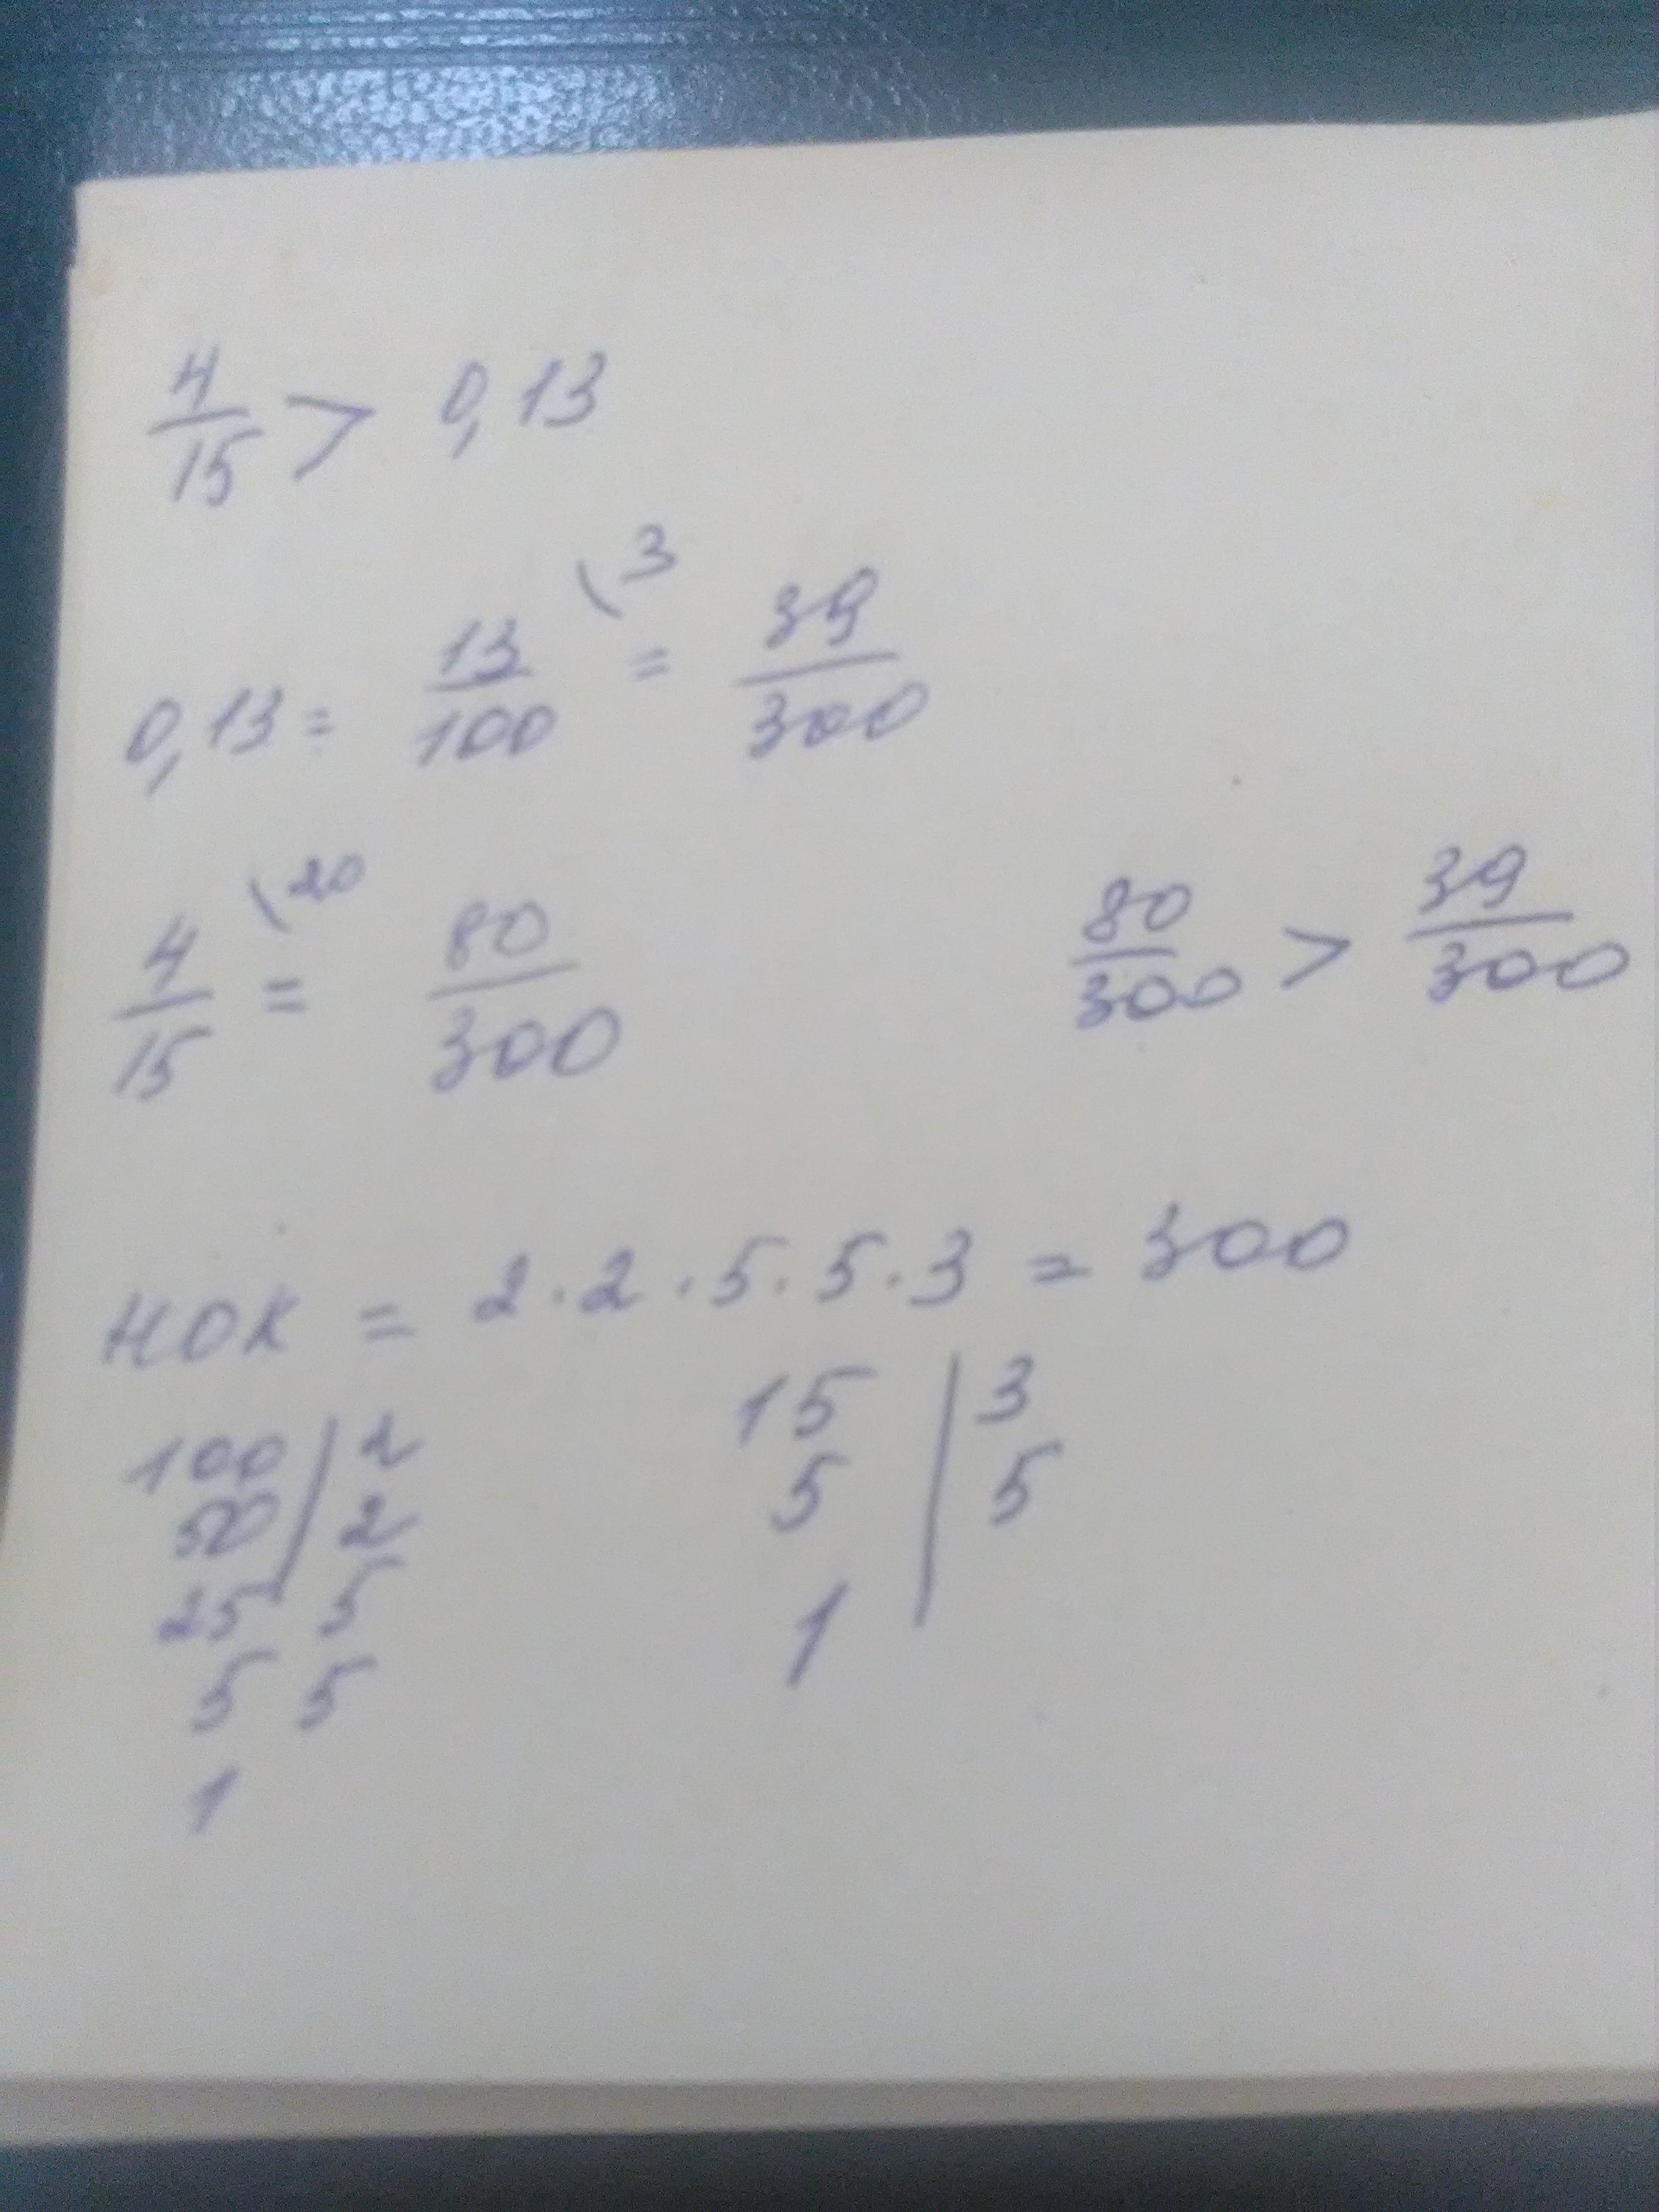 4/15 > 0,13
0,13 = 13/100 \3 = 39/300
4/15 \20 = 80/300
80/300 > 39/300
НОК = 2·2·5·5·3 = 300
100 | 2
50 | 2
25 5
5 5
1
15 | 3
5 | 5
1